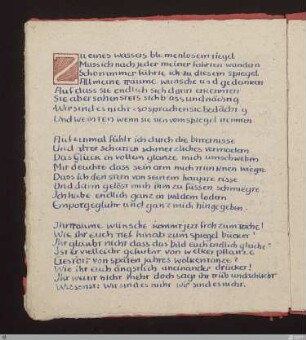 Zu eines wassers blumenlosem tiegel
Muss ich nach jeder meiner fahrten wandern
Schon immer führte ich zu diesem spiegel
All meine träume wünsche und gedanken
Auf dass sie endlich sich darin erkennten
Sie aber sahen stets sich blass und nächtig
Wir sind es nicht · so sprachen sie bedächtig
Und weinten wenn sie sich vom spiegel trennten

Auf einmal fühlt ich durch die bitternisse
Und alter schatten schmerzliches vermodern
Das Glück in vollem glanze mich umschweben
Mir deuchte dass sein arm mich trunknen wiegte
Dass ich den stern von seinem haupte risse
Und dann gelöst mich ihm zu füssen schmiegte
Ich habe endlich ganz in wildem lodern
Emporgeglüht und ganz mich hingegeben

Ihr träume wünsche kommt jezt froh zum teiche!
Wie ihr euch tief hinab zum spiegel bücket!
Ihr glaubt nicht dass das bild euch endlich gleiche?
Ist er vielleicht gefurcht von welker pflanze
Gestört von späten jahres wolkentanze?
Wie ihr euch ängstlich aneinander drücket!
Ihr weint nicht mehr doch sagt ihr trüb und schlicht
Wie sonst: wir sind es nicht wir sind es nicht.